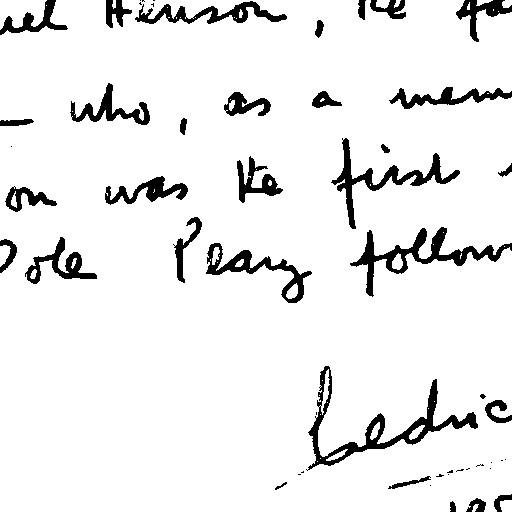 uel Henson, the fa
— who, as a mem
on was the first
Pole Peary follow
Cedric
195